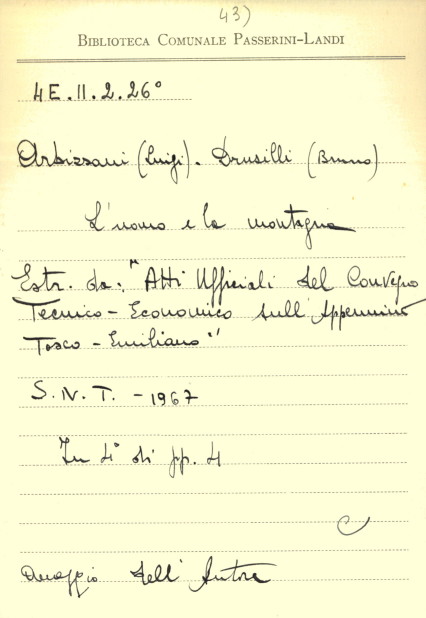 43)
BIBLIOTECA COMUNALE PASSERINI-LANDI
4E.II.2.26°
Arbizzani (Luigi). Drusilli (Bruno)
L'uomo e la montagna
Estr. da: "Atti Ufficiali del Convegno
Tecnico-Economico sull'Appennino
Tosco-Emiliano"
S.N.T. - 1967
In 4° di pp. 4
C
Omaggio dell'Autore